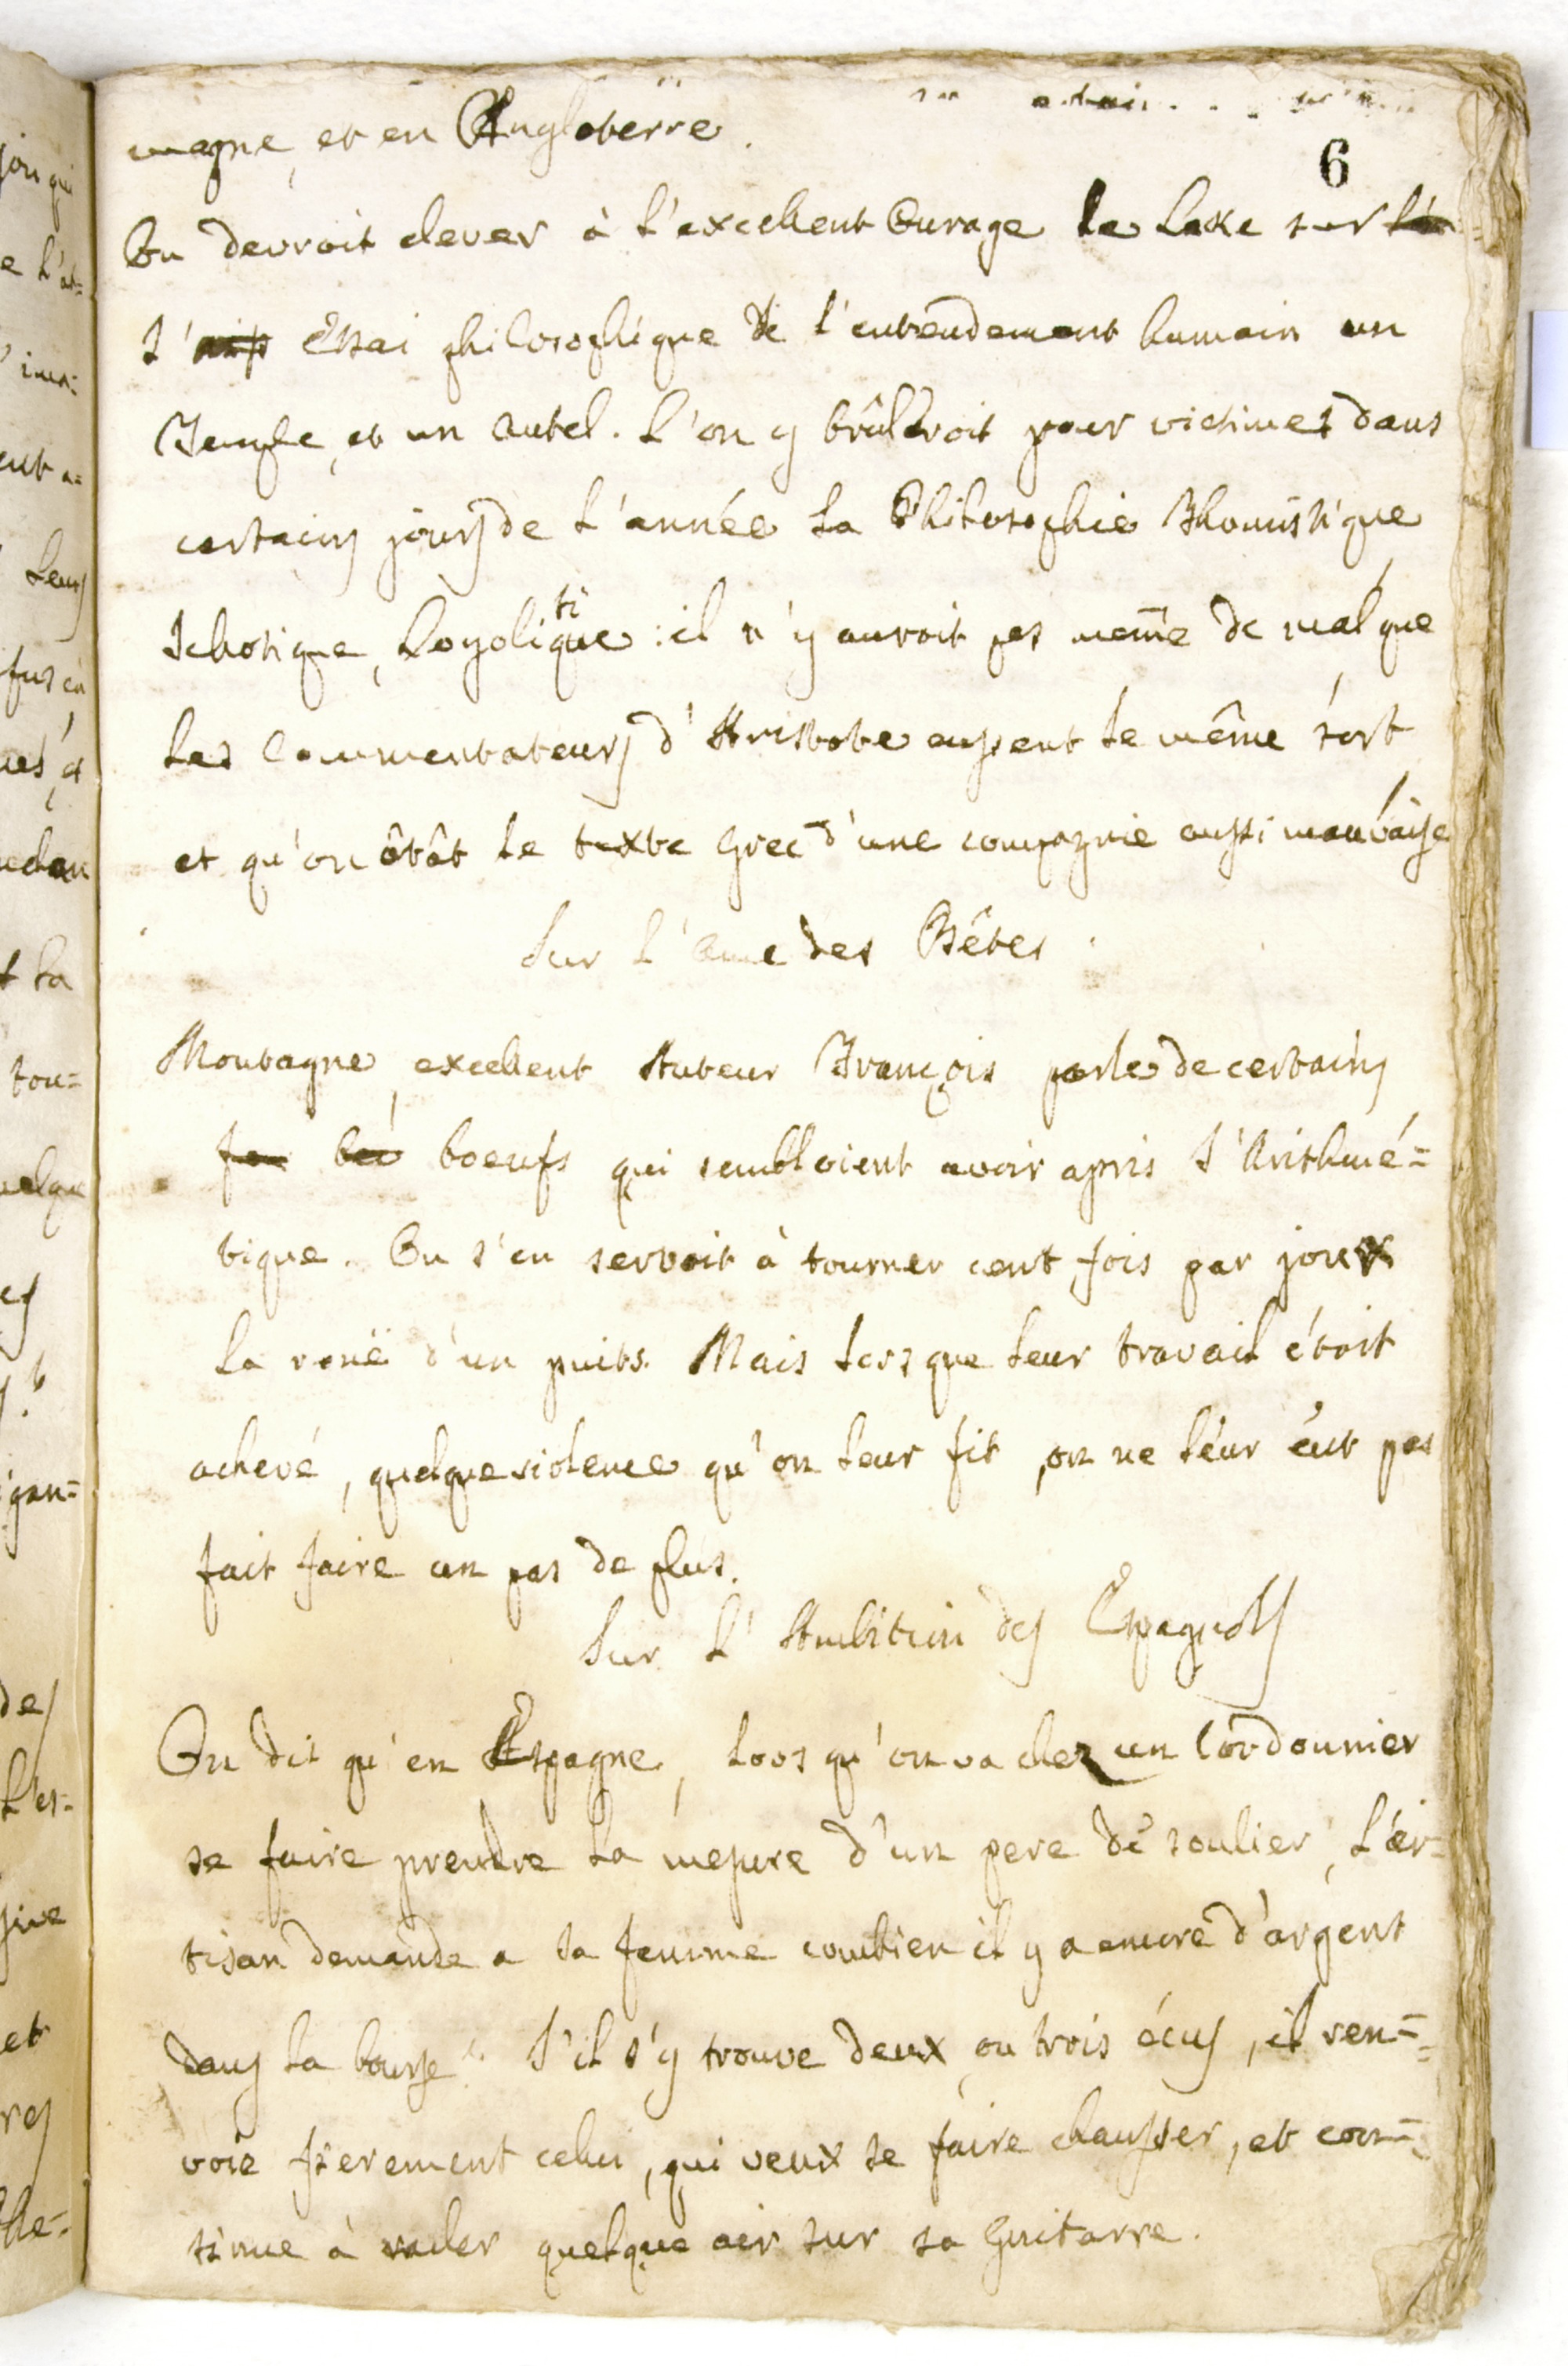 magne, et en Angleterre.
6
On devroit elever à l'excellent Ouvrage de Loke sur
l' Essai philosophique de l'entendement humain un
Temple, et un autel. L'on y brûleroit pour victimes dans
certains jours de l'année la Philosophie Thomistique
Schotique, Loyolitique : il n'y auroit pas même de mal que
les Commentateurs d'Aristote eussent le même sort
et qu'on ôtât le texte Grec d'une compagnie aussi mauvaise
Sur l'Ame des Bêtes.
Montagne, excellent Auteur François parle de certains
boeufs qui sembloient avoir apris l'Arithmé=
tique. On s'en servoit à tourner cent fois par jour
la rouë d'un puits. Mais lors que leur travail étoit
achevé, quelque violence qu'on leur fit, on ne leur eut pas
fait faire un pas de plus.
Sur l'Ambition des Espagnols
On dit qu'en Espagne, lors qu'on va chez un Cordonnier
se faire prendre la mesure d'un pere de soulier, l'ar=
tisan demande a sa femme combien il y a encore d'argent
dans la bourse. S'il s'y trouve deux, ou trois écus, il ren=
voie fierement celui, qui veux se faire chausser, et con=
tinue à racler quelque air sur sa Guitarre.